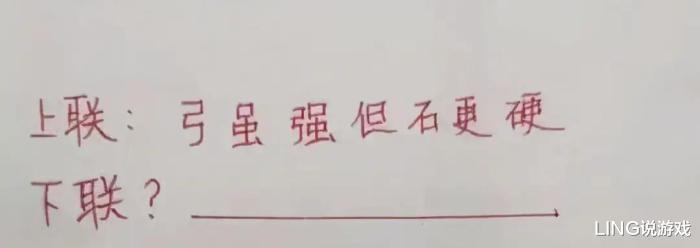 上联：弓虽强但石更硬
下联？
LING说游戏